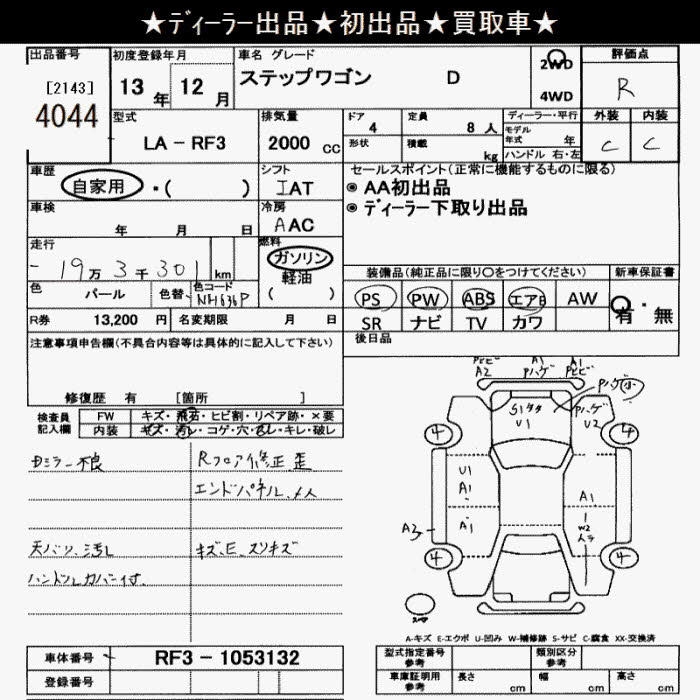 ★ディーラー出品★初出品★買取車★
出品番号
[2143]
4044
初度登録年月
13 年 12 月
車名 グレード
ステップワゴン D
2WD
4WD
評価点
R
型式
LA－RF3
排気量
2000 cc
ドア
4
定員
8 人
形状
積載
kg
ディーラー・平行
モデル
年式 年
ハンドル 右・左
外装 内装
C C
車歴
自家用・( )
シフト
IAT
車検
年 月 日
冷房
AAC
走行
19万3千301 km
燃料
ガソリン
軽油
( )
セールスポイント(正常に機能するものに限る)
◉ AA初出品
◉ ディーラー下取り出品
色
パール
色替
色コード
NH636P
装備品(純正品に限り〇をつけてください)
新車保証書
PS PW ABS エアB AW
有・無
SR ナビ TV カワ
R券 13,200 円
名変期限 月 日
後日品
注意事項申告欄(不具合内容等は具体的に記入して下さい)
修復歴 有 [箇所 ]
検査員
記入欄
FW キズ・飛石・ヒビ割・リペア跡・×要
内装 キズ・汚レ・コゲ・穴・ビレ・キレ・破レ
Dミラー不良
Rフロア修正歪
エンドパネル、メ人
天バリ、汚レ
キズ、E、スリキズ
ハンドルカバー付
A2
A1
Pハゲ
A1
Pハゲ
Pハゲ
S1タタ
U1
U2
4
4
U1
A1
A1
A1
W2
A3
4
4
スペア
A-キズ E-エクボ U-凹み W-補修跡 S-サビ C-腐食 XX-交換済
車体番号
RF3－1053132
登録番号
型式指定番号
参考
類別区分
参考
車庫証明用
参考
長さ
cm
幅
cm
高さ
cm